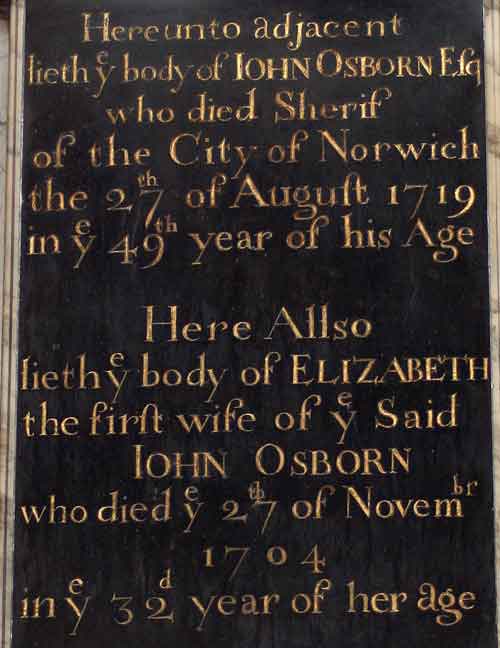 Hereunto adjacent
lieth yᵉ body of IOHN OSBORN Eſq
who died Sherif
of the City of Norwich
the 27ᵗʰ of Auguſt 1719
in yᵉ 49ᵗʰ year of his Age
Here Allso
lieth yᵉ body of ELIZABETH
the firſt wife of yᵉ Said
IOHN OSBORN
who died yᵉ 27ᵗʰ of Novemᵇʳ
1704
in yᵉ 32ᵈ year of her age